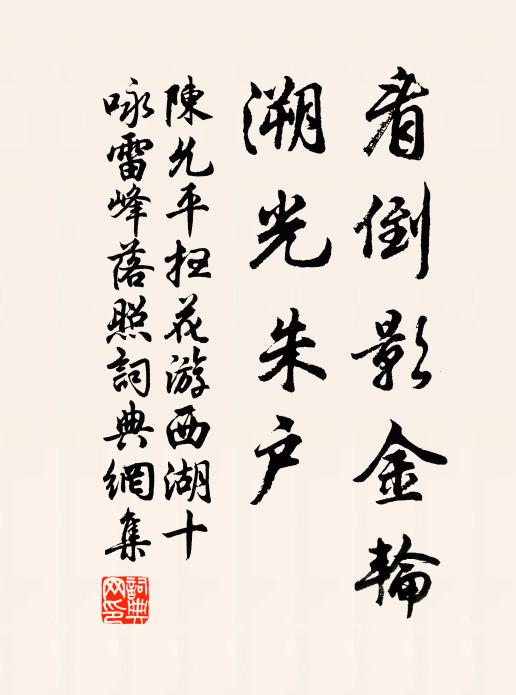 看倒影金輪
溯光朱户
陳允平扫花游西湖十
咏雷峰落照詞典網集
詞典网印